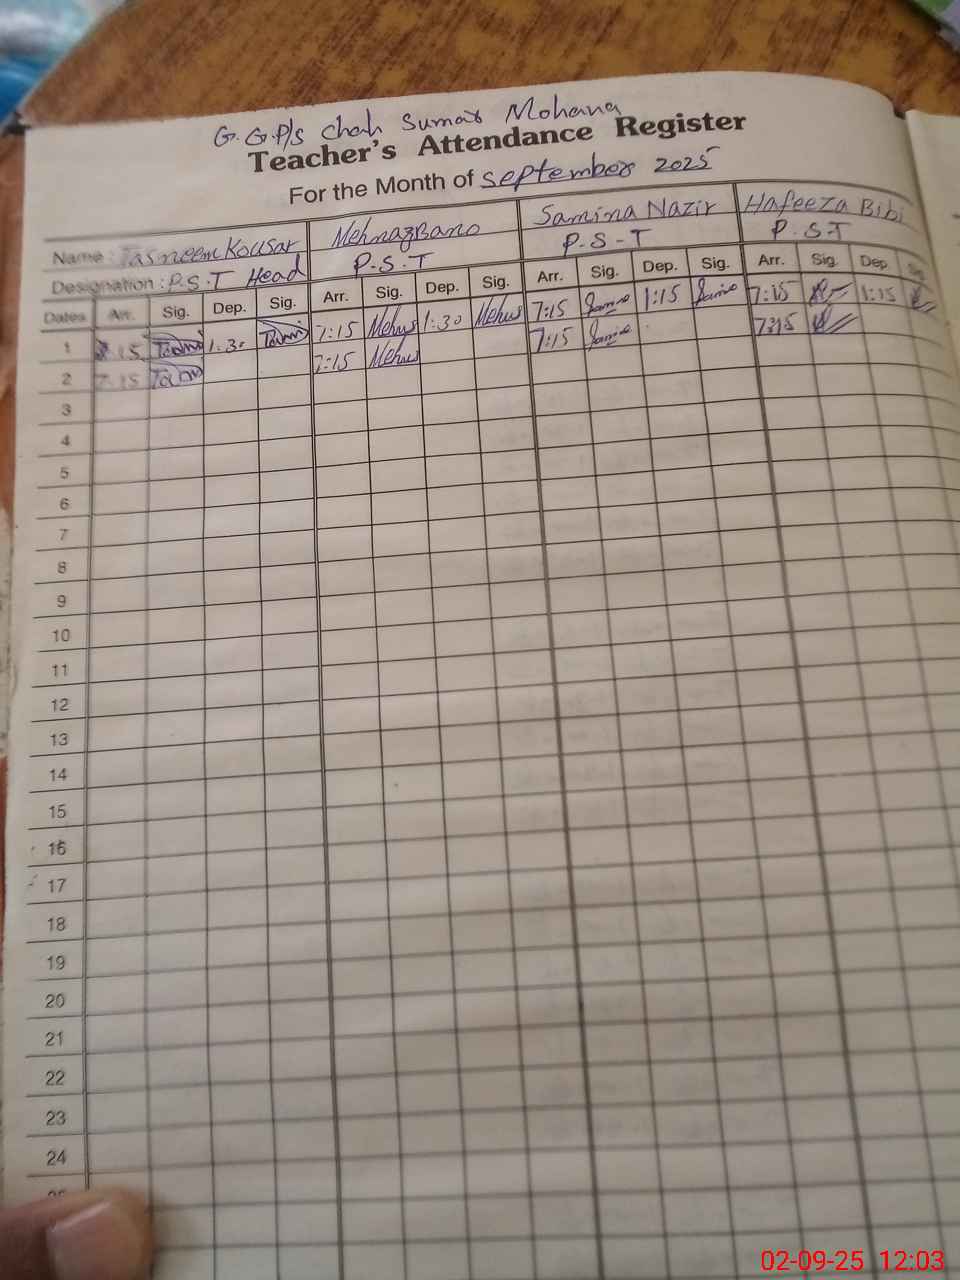 G.G.P/S chah Sumar Mohana
Teacher's Attendance Register
For the Month of September 2025
Name : Tasneem Kousar Mehnaz Bano Samina Nazir Hafeeza Bibi
Designation : P.S.T Head P.S.T P.S-T P.S.T
Dates Arr. Sig. Dep. Sig. Arr. Sig. Dep. Sig. Arr. Sig. Dep. Sig. Arr. Sig. Dep. Sig.
1 7:15 1:30 7:15 1:30 7:15 1:15 7:15 1:15
2 7:15 7:15 7:15 7:15
3
4
5
6
7
8
9
10
11
12
13
14
15
16
17
18
19
20
21
22
23
24
02-09-25 12:03